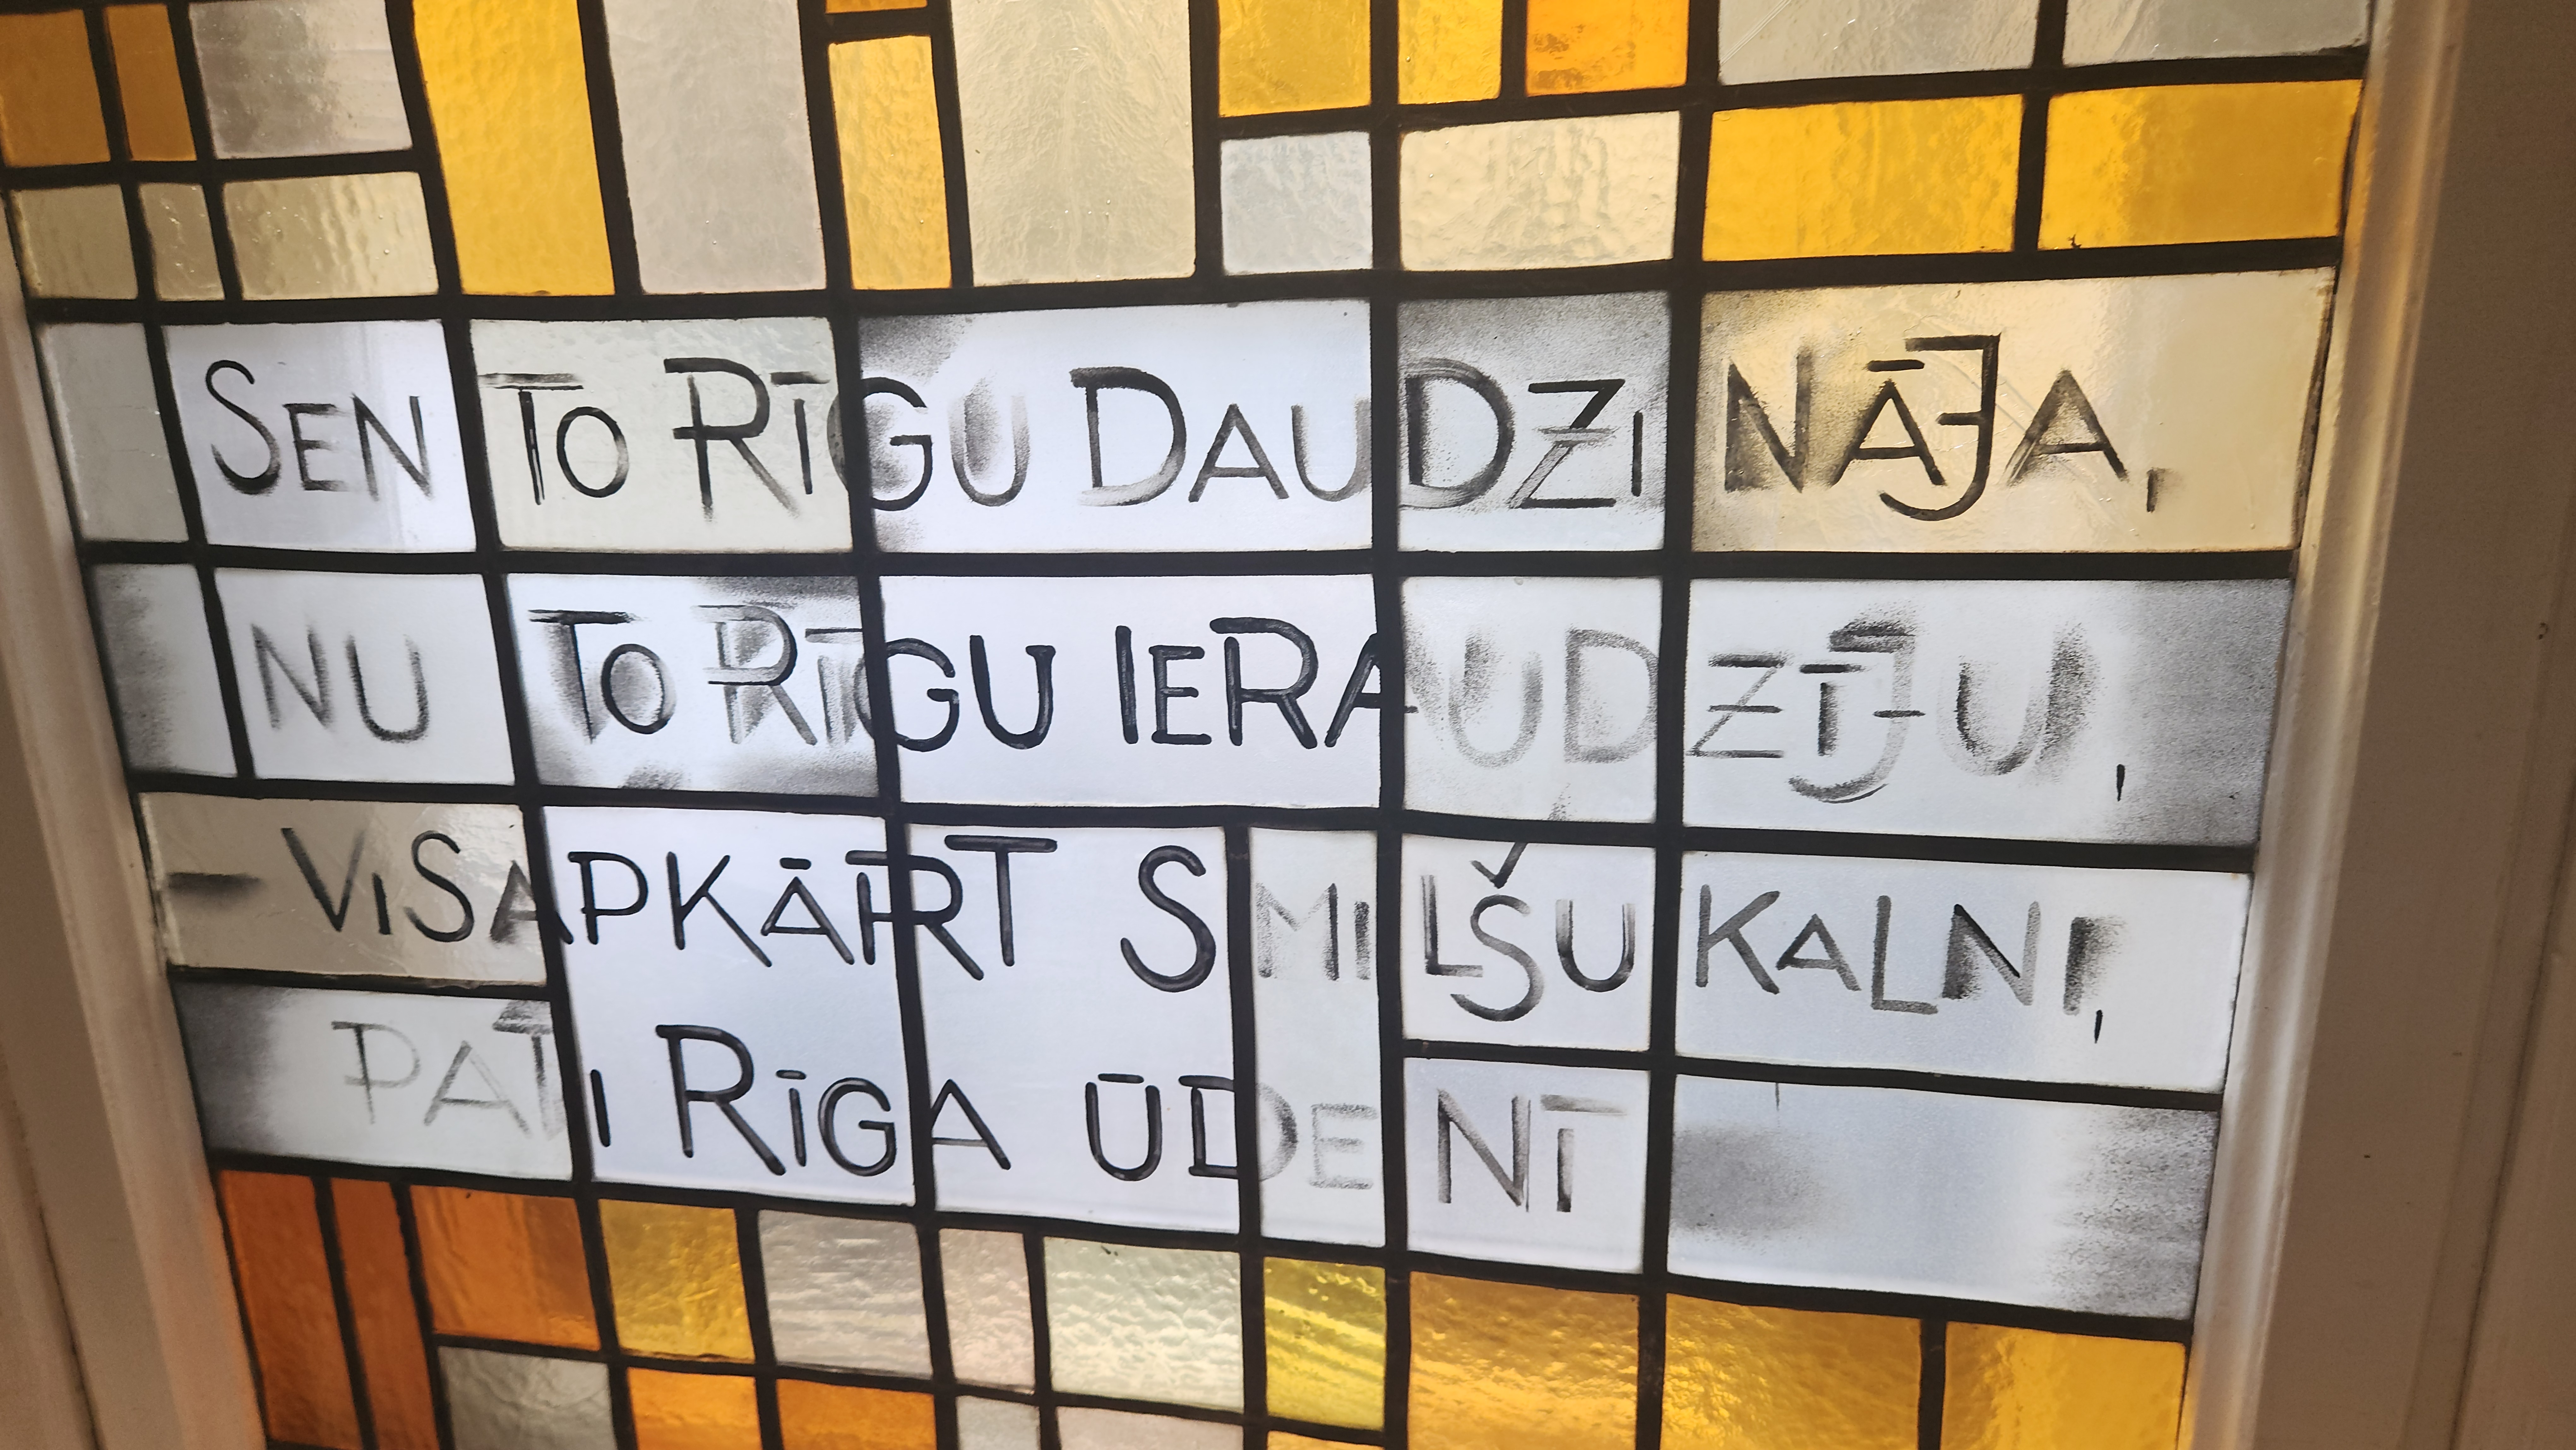 SEN TO RĪGU DAUDZINĀJA,
NU TO RĪGU IERAUDZĪJU,
– VISAPKĀRT SMILŠU KALNI,
PATI RĪGA ŪDENĪ